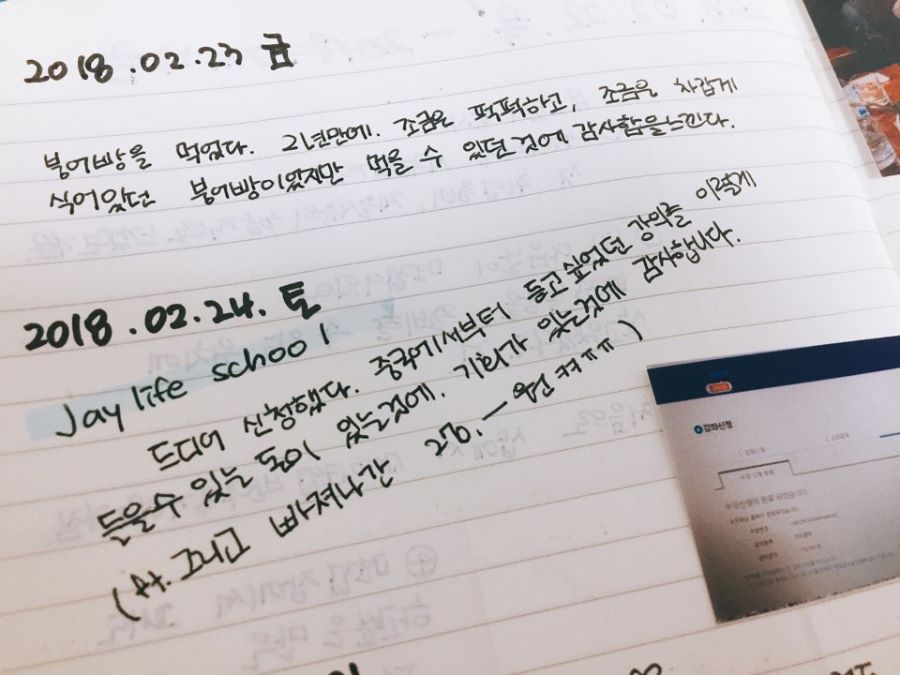 2018.02.23 금
붕어빵을 먹었다. 2년만에. 조금은 퍽퍽하고, 조금은 차갑게
식어있던 붕어빵이었지만 먹을 수 있던 것에 감사함을느낀다.
2018.02.24. 토
Jay life school
드디어 신청했다. 중국에서부터 듣고싶었던 강의를 이렇게
들을수 있는 돈이 있는것에. 기회가 있는것에 감사합니다.
(아. 그리고 빠져나간 원 ㅋㅋㅠㅠ)
강좌신청